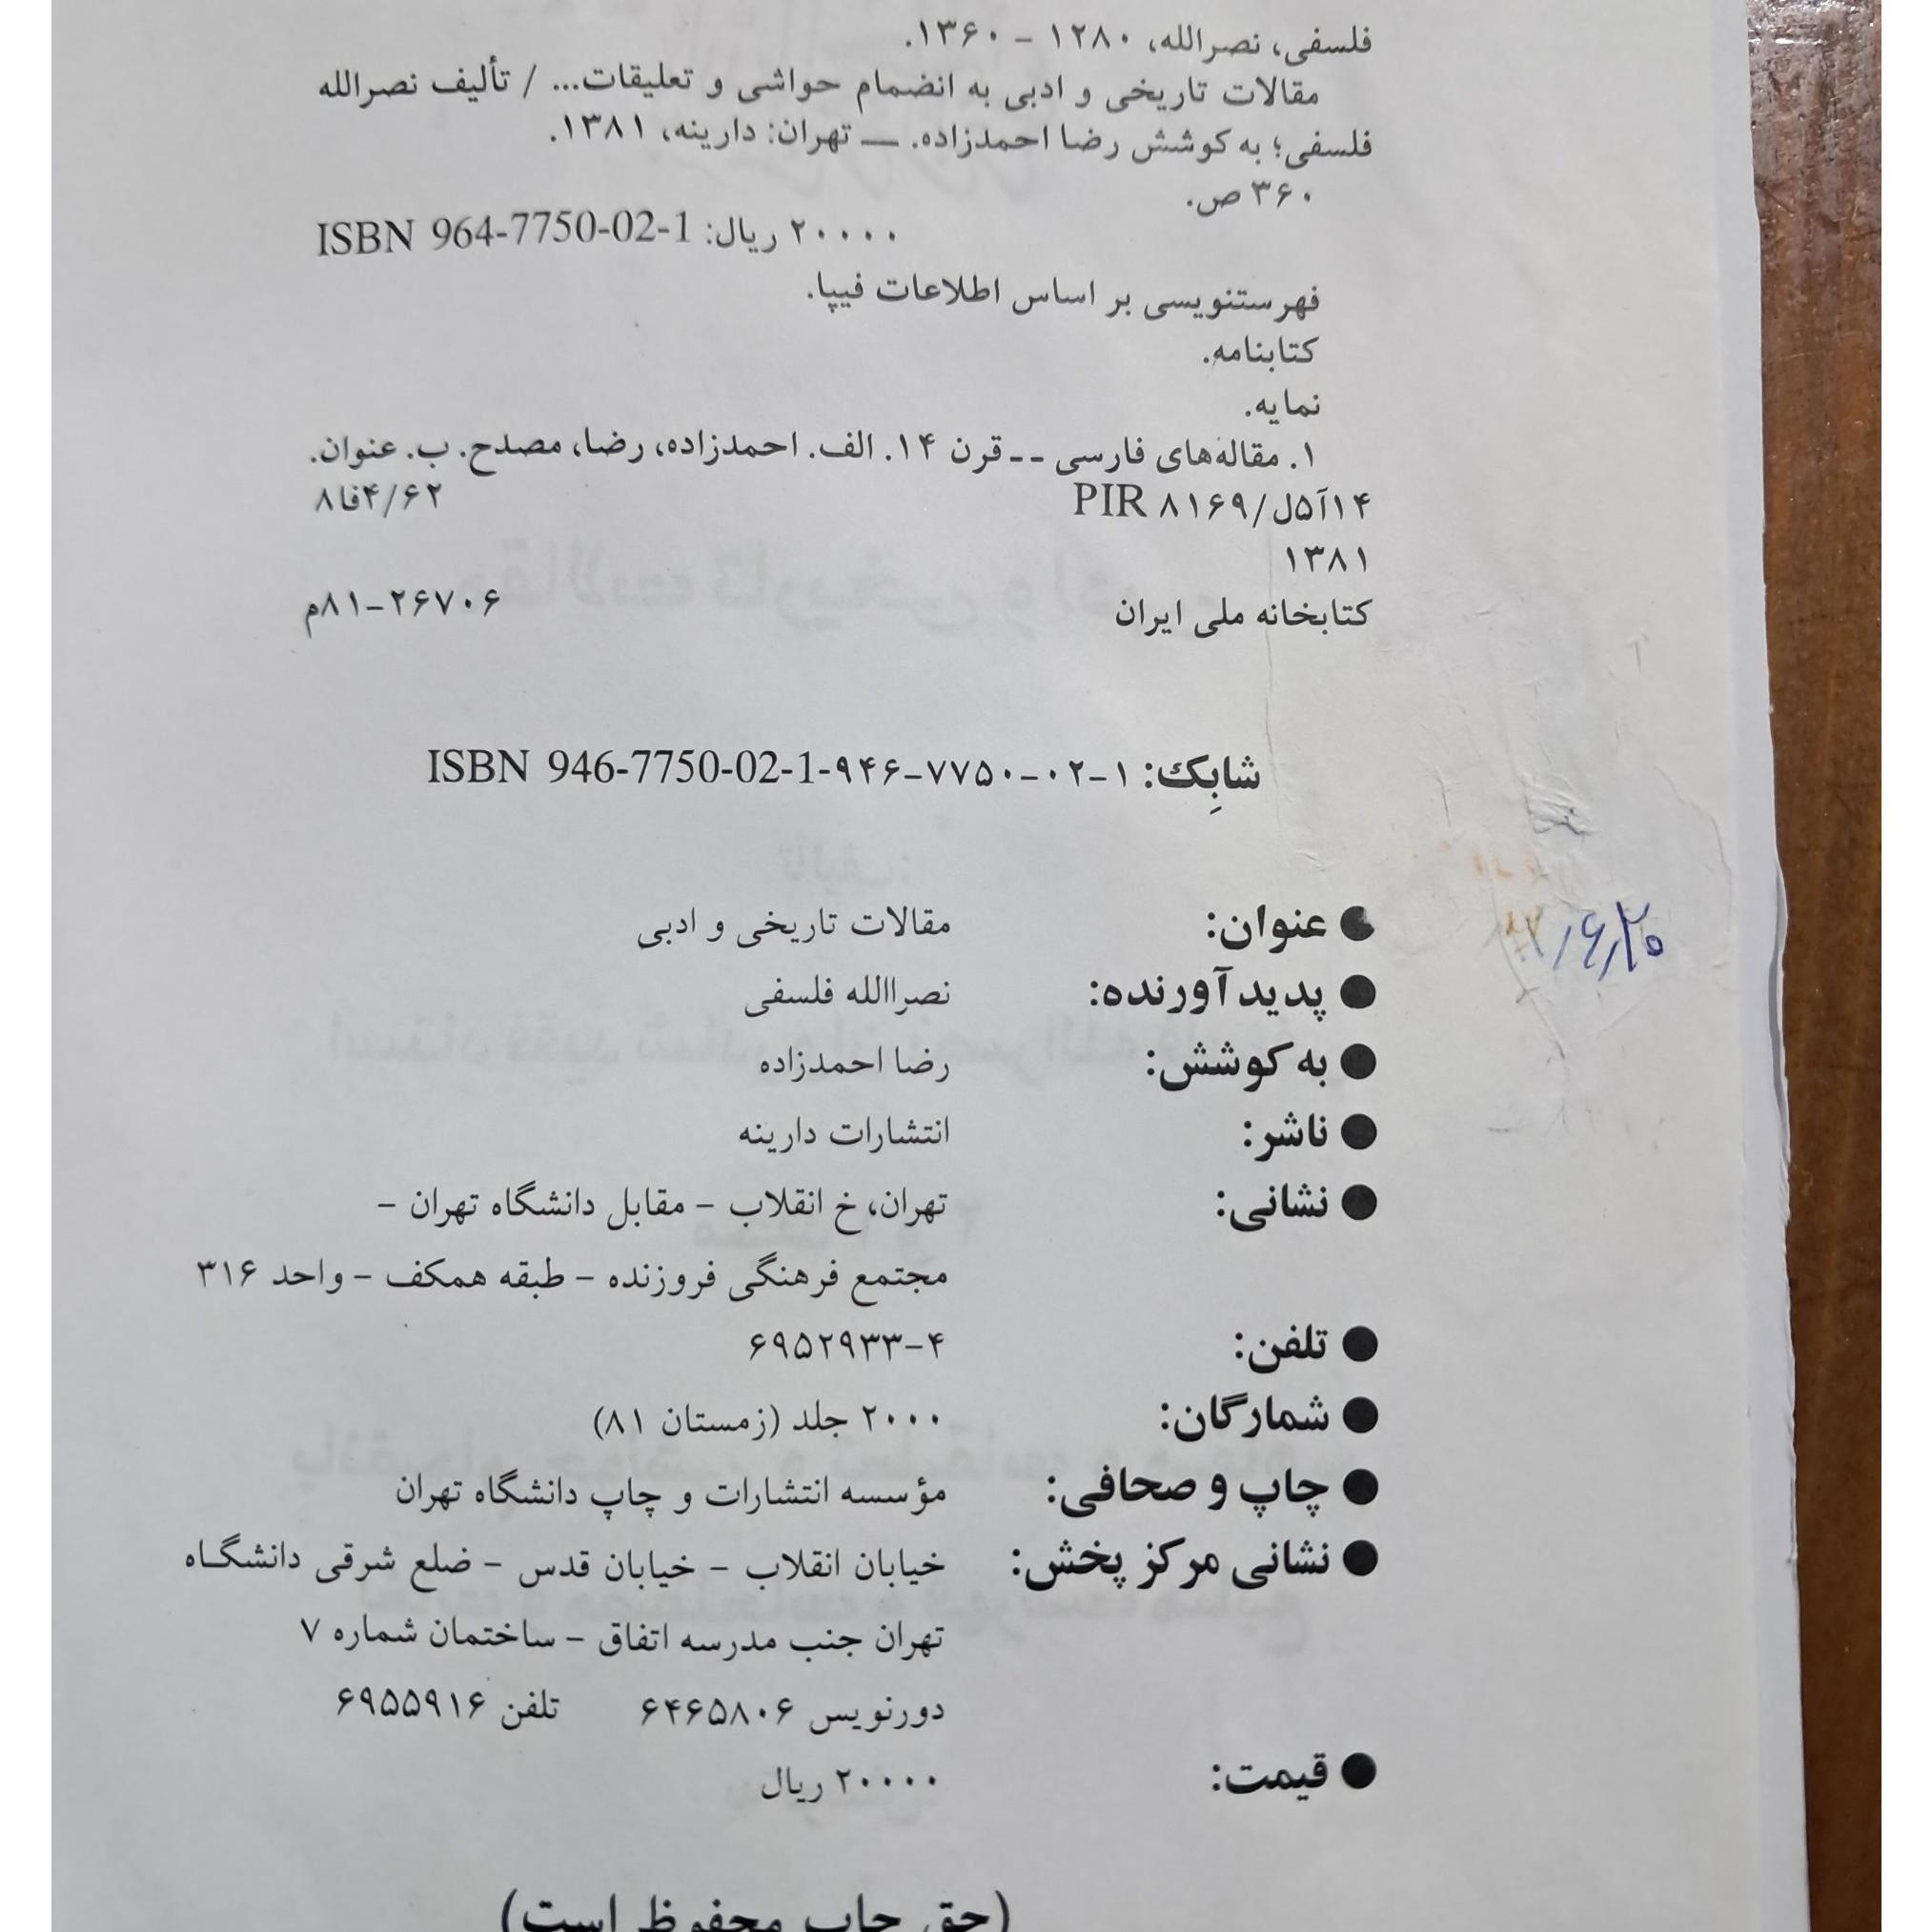 فلسفی، نصرالله، ۱۲۸۰ - ۱۳۶۰.
مقالات تاریخی و ادبی به انضمام حواشی و تعلیقات... / تألیف نصرالله
فلسفی؛ به کوشش رضا احمدزاده. — تهران: دارینه، ۱۳۸۱.
۳۶۰ ص.
ISBN 964-7750-02-1 :۲۰۰۰۰ ریال
فهرستنویسی بر اساس اطلاعات فیپا.
کتابنامه.
نمایه.
۱. مقاله‌های فارسی -- قرن ۱۴. الف. احمدزاده، رضا، مصدح. ب. عنوان.
PIR ۸۱۶۹/ل۵آ۱۴ ۸فا۴/۶۲
۱۳۸۱
کتابخانه ملی ایران ۸۱-۲۶۷۰۶م
شابِک: ۱-۰۲-۷۷۵۰-۹۴۶-ISBN 946-7750-02-1
● عنوان: مقالات تاریخی و ادبی
● پدیدآورنده: نصراالله فلسفی
● به کوشش: رضا احمدزاده
● ناشر: انتشارات دارینه
● نشانی: تهران، خ انقلاب - مقابل دانشگاه تهران -
مجتمع فرهنگی فروزنده - طبقه همکف - واحد ۳۱۶
● تلفن: ۴-۶۹۵۲۹۳۳
● شمارگان: ۲۰۰۰ جلد (زمستان ۸۱)
● چاپ و صحافی: مؤسسه انتشارات و چاپ دانشگاه تهران
● نشانی مرکز پخش: خیابان انقلاب - خیابان قدس - ضلع شرقی دانشگاه
تهران جنب مدرسه اتفاق - ساختمان شماره ۷
دورنویس ۶۴۶۵۸۰۶ تلفن ۶۹۵۵۹۱۶
● قیمت: ۲۰۰۰۰ ریال
(حق چاپ محفوظ است)